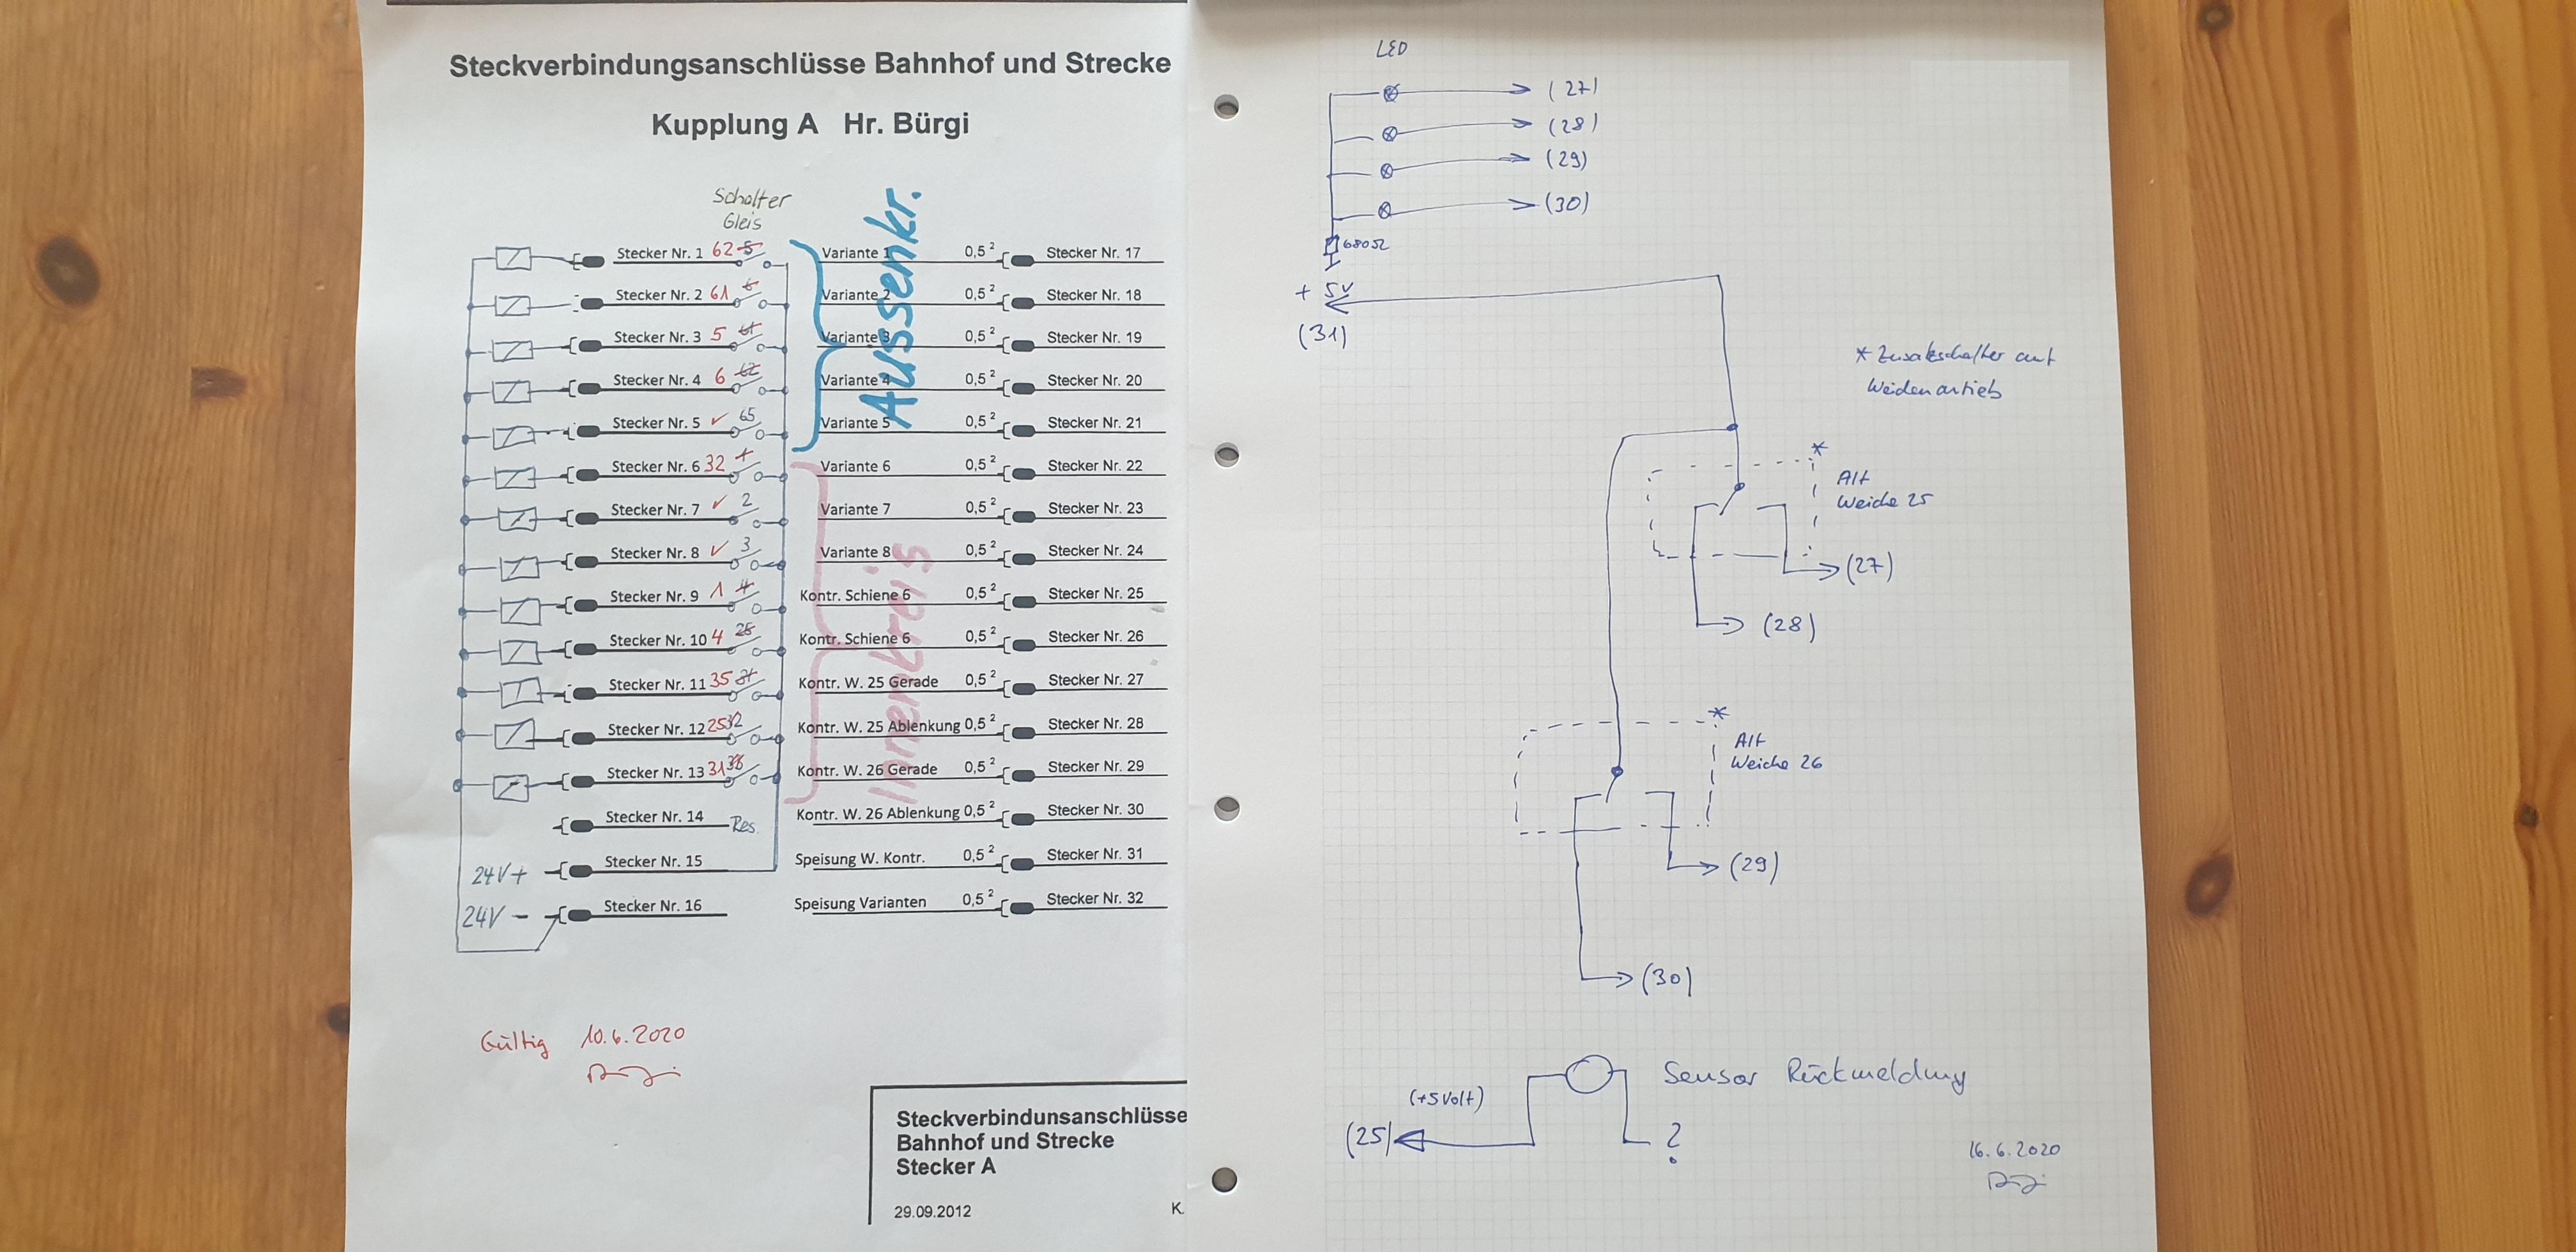 Steckverbindungsanschlüsse Bahnhof und Strecke
Kupplung A Hr. Bürgi
Schalter
Gleis
Stecker Nr. 1 62 5
Stecker Nr. 2 61 6
Stecker Nr. 3 5 61
Stecker Nr. 4 6 62
Stecker Nr. 5 ✓ 65
Stecker Nr. 6 32 1
Stecker Nr. 7 ✓ 2
Stecker Nr. 8 ✓ 3
Stecker Nr. 9 1 4
Stecker Nr. 10 4 25
Stecker Nr. 11 35 31
Stecker Nr. 12 25 32
Stecker Nr. 13 31
Stecker Nr. 14 Res.
24V+ Stecker Nr. 15
24V - Stecker Nr. 16
Aussenkr.
Innenkreis
Variante 1 0,5² Stecker Nr. 17
Variante 2 0,5² Stecker Nr. 18
Variante 3 0,5² Stecker Nr. 19
Variante 4 0,5² Stecker Nr. 20
Variante 5 0,5² Stecker Nr. 21
Variante 6 0,5² Stecker Nr. 22
Variante 7 0,5² Stecker Nr. 23
Variante 8 0,5² Stecker Nr. 24
Kontr. Schiene 6 0,5² Stecker Nr. 25
Kontr. Schiene 6 0,5² Stecker Nr. 26
Kontr. W. 25 Gerade 0,5² Stecker Nr. 27
Kontr. W. 25 Ablenkung 0,5² Stecker Nr. 28
Kontr. W. 26 Gerade 0,5² Stecker Nr. 29
Kontr. W. 26 Ablenkung 0,5² Stecker Nr. 30
Speisung W. Kontr. 0,5² Stecker Nr. 31
Speisung Varianten 0,5² Stecker Nr. 32
Gültig 10.6.2020
Steckverbindunsanschlüsse
Bahnhof und Strecke
Stecker A
29.09.2012 K.
LED
(27)
(28)
(29)
(30)
680Ω
+ 5V
(31)
* Zusatzschalter auf
Weichenantrieb
*
Alt
Weiche 25
(27)
(28)
*
Alt
Weiche 26
(29)
(30)
Sensor Rückmeldung
(+5Volt)
(25) ?
16.6.2020